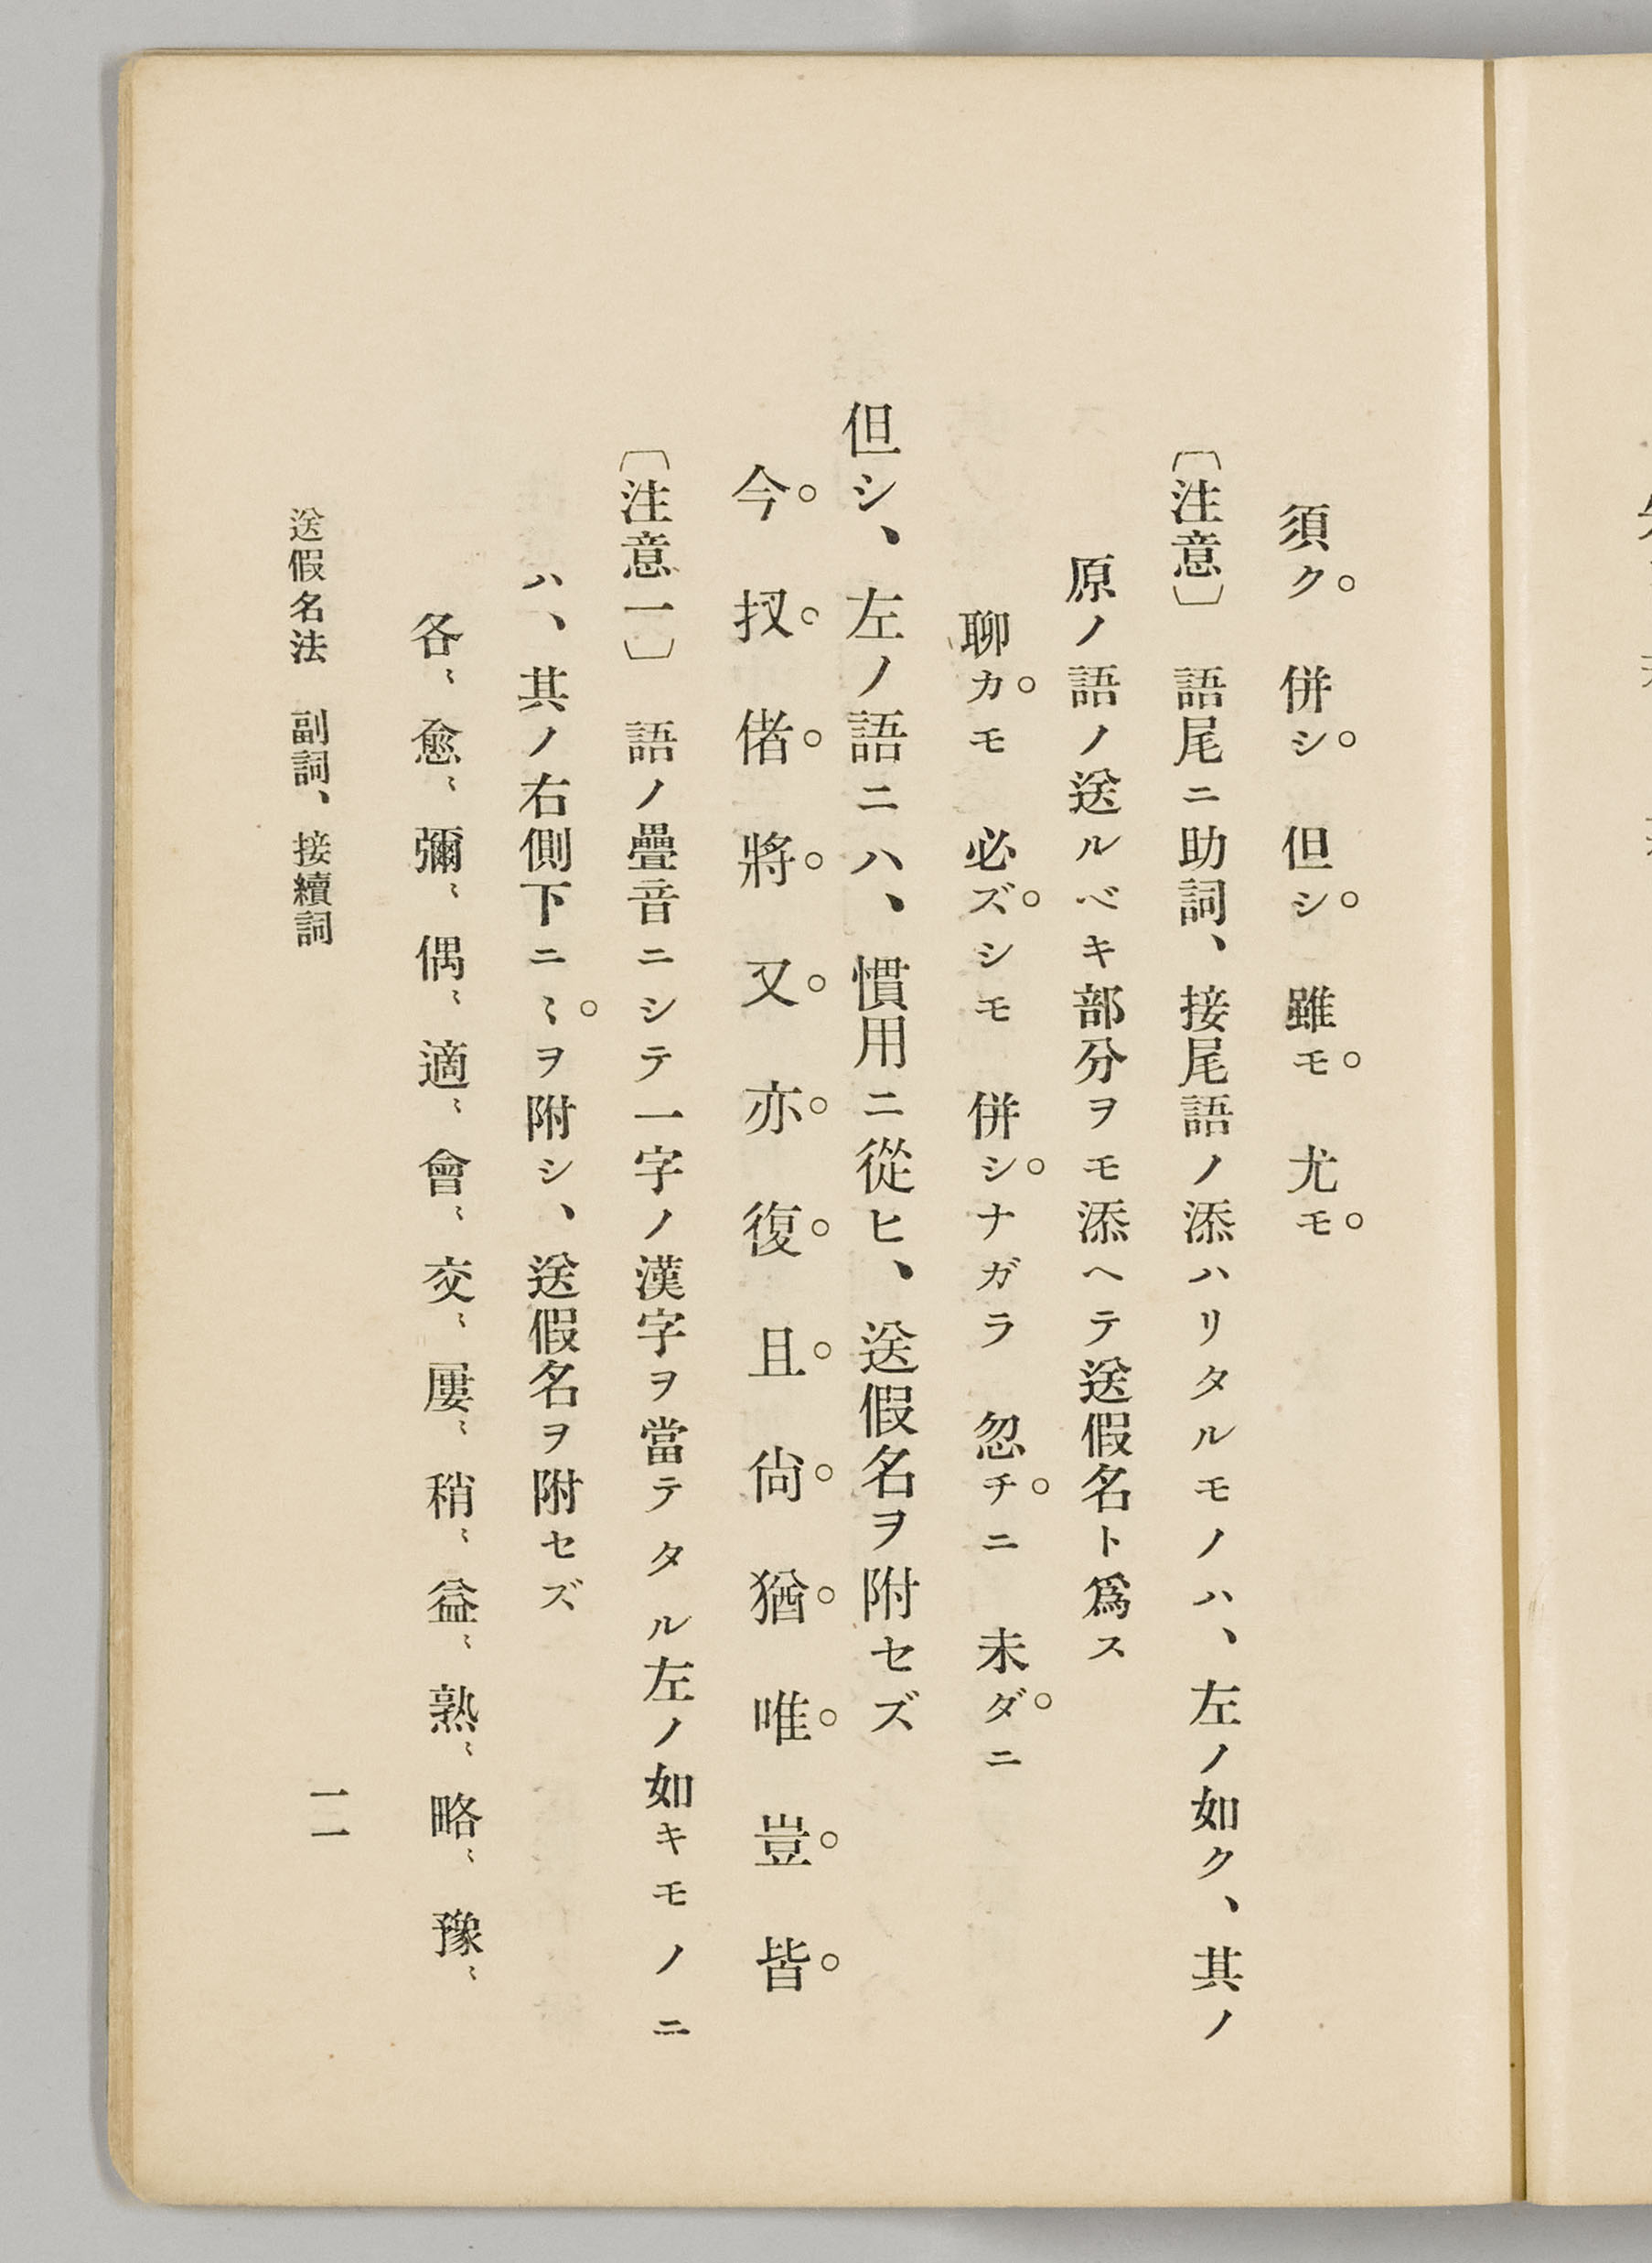 須ク。　併シ。　但シ。　雖モ。　尤モ。
〔注意〕　語尾ニ助詞、接尾語ノ添ハリタルモノハ、左ノ如ク、其ノ
原ノ語ノ送ルベキ部分ヲモ添ヘテ送假名ト爲ス
聊カ。モ　必ズ。シモ　併シ。ナガラ　忽チ。ニ　未ダ。ニ
但シ、左ノ語ニハ、慣用ニ從ヒ、送假名ヲ附セズ
今。　扠。　偖。　將。　又。　亦。　復。　且。　尙。　猶。　唯。　豈。　皆。
〔注意一〕　語ノ疊音ニシテ一字ノ漢字ヲ當テタル左ノ如キモノニ
ハ、其ノ右側下ニ〻。ヲ附シ、送假名ヲ附セズ
各〻　愈〻　彌〻　偶〻　適〻　會〻　交〻　屢〻　稍〻　益〻　熟〻　略〻　豫〻
送假名法　副詞、接續詞
一一